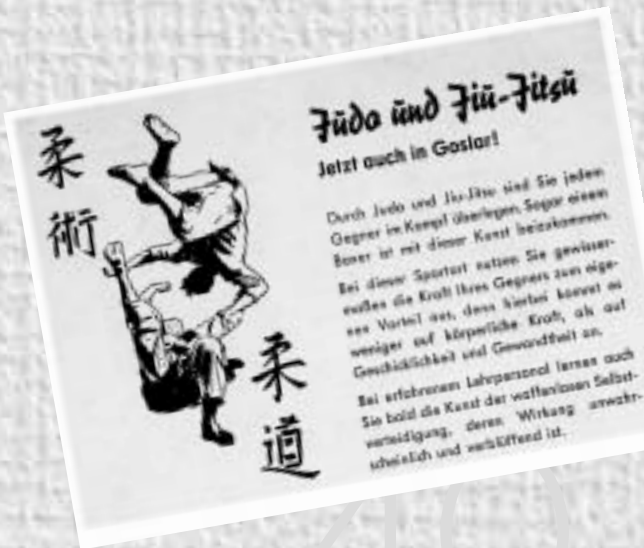 柔術
柔道
Jūdo ūnd Jiū-Jitsū
Jetzt auch in Goslar!
Durch Judo und Jiu-Jitsu sind Sie jedem
Gegner im Kampf überlegen. Sogar einem
Boxer ist mit dieser Kunst beizukommen.
Bei dieser Sportart nutzen Sie gewisser-
maßen die Kraft Ihres Gegners zum eige-
nen Vorteil aus, denn hierbei kommt es
weniger auf körperliche Kraft, als auf
Geschicklichkeit und Gewandtheit an.
Bei erfahrenem Lehrpersonal lernen auch
Sie bald die Kunst der waffenlosen Selbst-
verteidigung, deren Wirkung unwahr-
scheinlich und verblüffend ist.
40